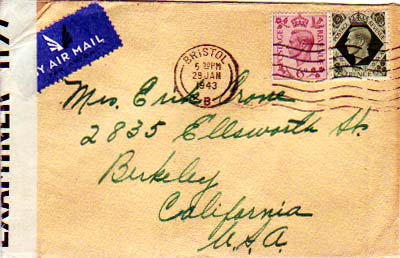 BY AIR MAIL
EXAMINER
BRISTOL
29 JAN
1943
B
POSTAGE REVENUE
6D
Mrs. Erik Krone
2835 Ellsworth St.
Berkeley
California
U.S.A.